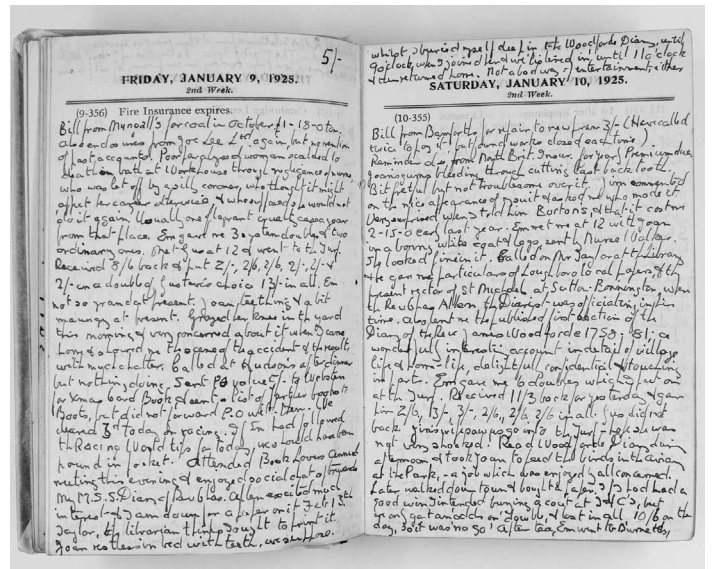 5/-
FRIDAY, JANUARY 9, 1925.
2nd Week.
(9-356) Fire Insurance expires.
Bill from for coal in October £1-18-0
also endows from Joe Lee Ltd again, but no mention
of past accounts. Poor paralysed woman scalded to
death in bath at Workhouse through negligence of nurse
who was let off by a silly coroner, who thought it might
affect her career otherwise, & who supposed she would not
"do it again". Usually one flagrant cruelty case a year
from that place. Em gave me 3 doubles & two
ordinary ones. Met Gus at 12 & went to the Turf.
Received 8/6 back & put 2/-, 2/6, 2/6, 2/-, 2/- &
2/- on a double (Gus's choice) 13/- in all. Em
not so grand at present. Joan teething & a bit
at present. Grazed her knee in the yard
this morning & very concerned about it when I came
home & showed me the scene of the accident & the results
with much chatter. Called at Hudsons after dinner
but nothing doing. Sent P.O.
for Xmas Card Book & sent list of further books to
Boots, but did not forward P.O. with them. We
3rd today in racing. If Em had followed
the Racing World tips for today, we should have been
pound in pocket. Attended Book Lovers Annual
meeting this evening & enjoyed social chat
My M.S.S. Diary of Rev. Chas. Allen excited much
interest & I am down for a paper on it Feb 13th
Taylor, the librarian thinks I ought to print it.
Joan restless in bed with teeth, we suppose.
whilst I buried myself deep in the Woodforde Diary, until
9 o'clock, when I joined them & we listened in, until 11 o'clock
& then returned home. Not a bad way of entertainment either
SATURDAY, JANUARY 10, 1925.
2nd Week.
(10-355)
Bill from Bamforths for repair to new pram 3/- (Have called
twice to pay it, but found works closed each time)
Reminder also from North Brit. Insur. for years Premium due.
Joan's gums bleeding through cutting last back tooth.
Bit fretful but not troublesome over it. Jim commented
on the nice appearance of my suit & asked me who made it
Very surprised when I told him Burtons, & that it cost me
2-15-0 early last year. Em met me at 12 with Joan
in a bonny white coat & legs, sent by Nurse Walker.
She looked fine in it. Called on Mr Taylor at the Library
& he gave me particulars of Loughboro' local papers, & the
present rector of St Michael, at Sutton-Bonnington, where
the Rev. Chas. Allen (the Diarist) was officiating in his
time. Also lent me the published first section of the
Diary of the Rev James Woodforde 1758-81; a
wonderfully interesting account in detail of village
life & home-life, delightful, confidential & touching
in parts. Em gave me 6 doubles which I put on
at the Turf. Received 11/3 back for yesterday & gave
him 2/6, 3/-, 3/-, 2/6, 2/6, 2/6 in all. Gus did not
back. Jim's wife saw us go into the Turf - hope she was
not very shocked! Read Woodforde's Diary during
afternoon & took Joan to feed the birds in the aviary
at the Park, - a job which was enjoyed by all concerned.
Later walked down town & bought a paper. If I had had a
good win I intended buying a coat at J & C's, but
we only got an odds on 'double', & lost in all 10/6 on the
day, so it was 'no go'. After tea, Em went to Burnetts,